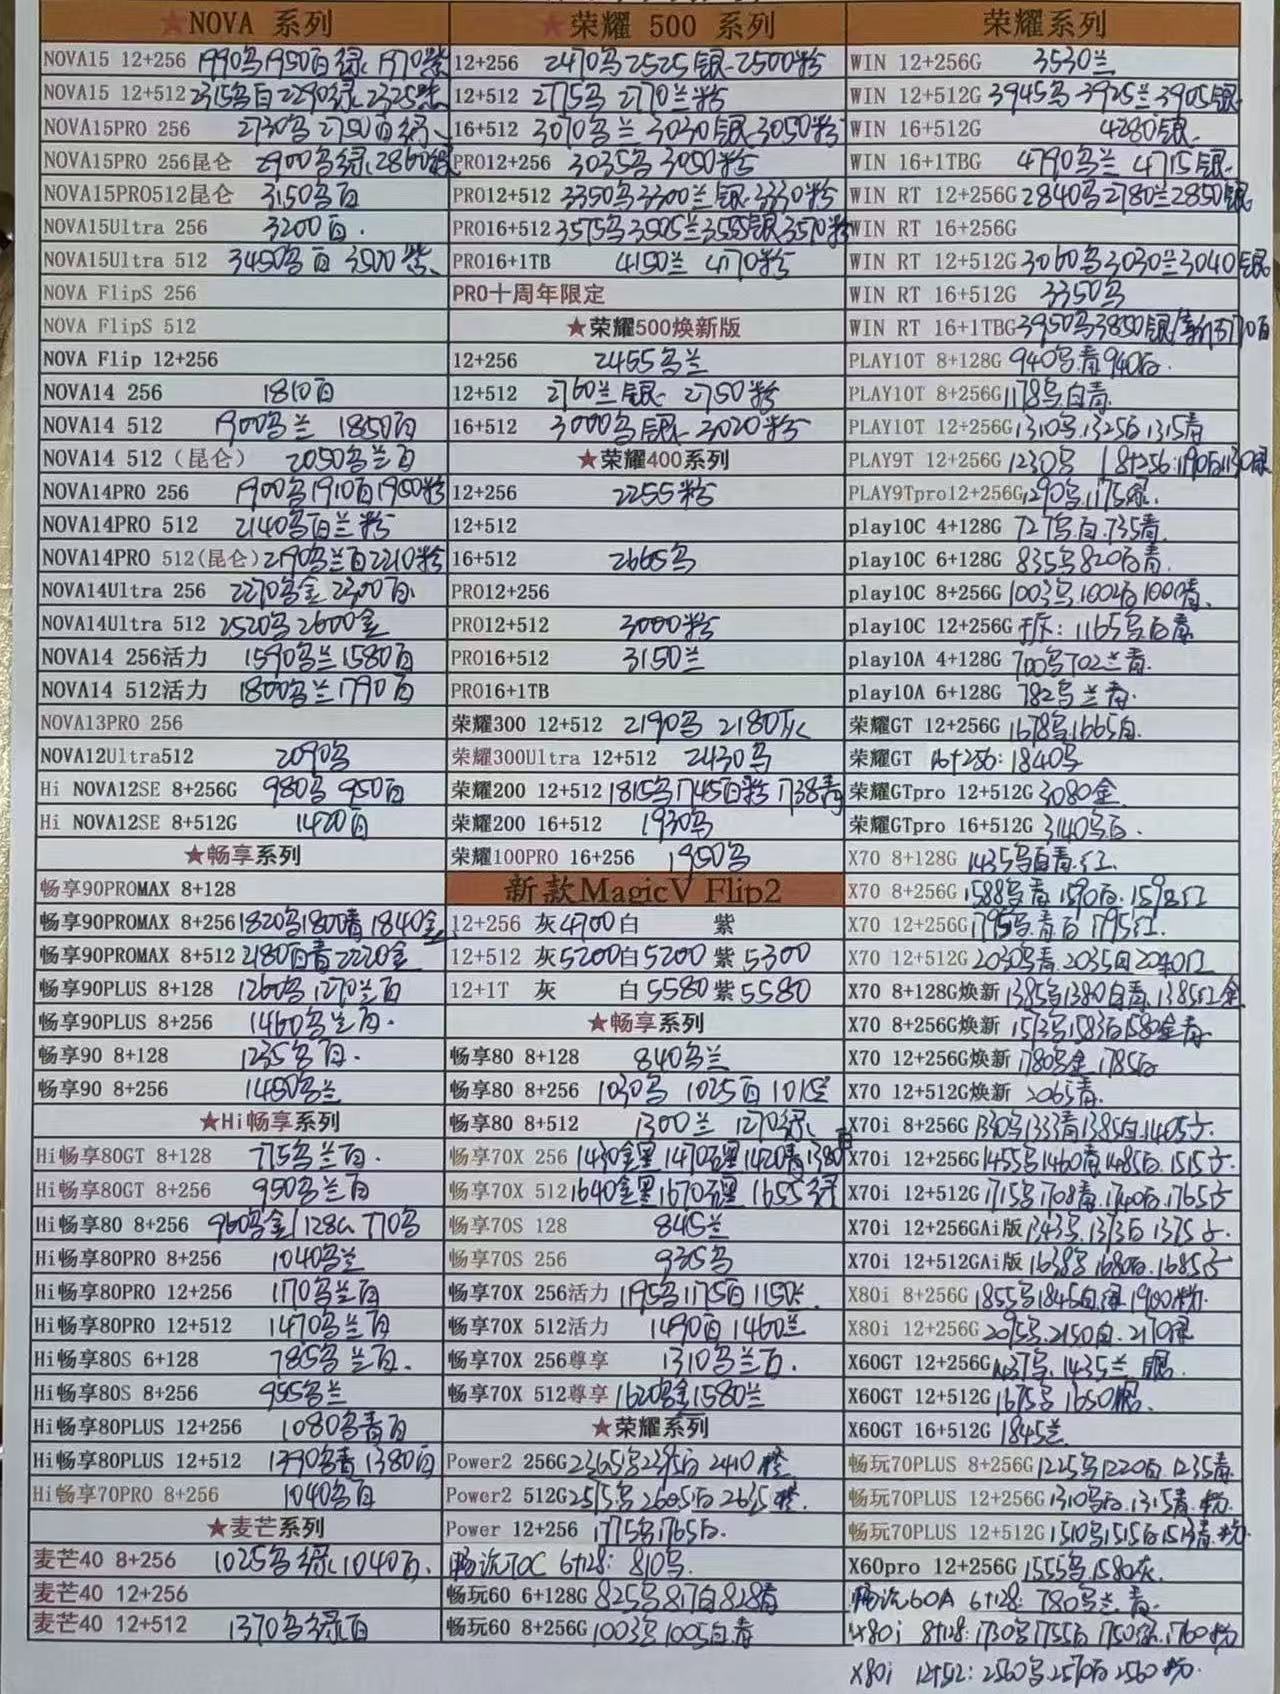 ★NOVA 系列
NOVA15 12+256 1990乌1950白绿 1970紫
NOVA15 12+512 2315乌白2290绿 2325紫
NOVA15PRO 256 2730乌 2750白绿
NOVA15PRO 256昆仑 2900乌绿 2860
NOVA15PRO512昆仑 3150乌白
NOVA15Ultra 256 3200白.
NOVA15Ultra 512 3450乌白 3500紫
NOVA FlipS 256
NOVA FlipS 512
NOVA Flip 12+256
NOVA14 256 1810白
NOVA14 512 1900乌兰 1850白
NOVA14 512（昆仑） 2050乌兰白
NOVA14PRO 256 1900乌1910白1950粉
NOVA14PRO 512 2140乌白兰粉
NOVA14PRO 512(昆仑) 2190乌兰白2210粉
NOVA14Ultra 256 2270乌金 2300白.
NOVA14Ultra 512 2520乌2600金
NOVA14 256活力 1590乌兰1580白
NOVA14 512活力 1800乌兰1790白
NOVA13PRO 256
NOVA12Ultra512 2090乌
Hi NOVA12SE 8+256G 980乌 950白
Hi NOVA12SE 8+512G 1420白
★畅享系列
畅享90PROMAX 8+128
畅享90PROMAX 8+256 1820乌1800青 1840金
畅享90PROMAX 8+512 2180白青2220金
畅享90PLUS 8+128 1260乌 1270兰白
畅享90PLUS 8+256 1460乌兰白.
畅享90 8+128 1235乌白.
畅享90 8+256 1450乌兰
★Hi畅享系列
Hi畅享80GT 8+128 775乌兰白.
Hi畅享80GT 8+256 950乌兰白
Hi畅享80 8+256 960乌金/128G 770乌
Hi畅享80PRO 8+256 1040乌兰
Hi畅享80PRO 12+256 1170乌兰白
Hi畅享80PRO 12+512 1470乌兰白
Hi畅享80S 6+128 785乌兰白.
Hi畅享80S 8+256 955乌兰
Hi畅享80PLUS 12+256 1080乌青白
Hi畅享80PLUS 12+512 1390乌青 1380白
Hi畅享70PRO 8+256 1040乌白
★麦芒系列
麦芒40 8+256 1025乌绿1040白.
麦芒40 12+256
麦芒40 12+512 1370乌绿白
★荣耀 500 系列
12+256 2470乌2525银 2500粉
12+512 2775乌 2770兰粉
16+512 3070乌兰 3030银 3050粉
PRO12+256 3035乌 3050粉
PRO12+512 3350乌3300兰银 3330粉
PRO16+512 3575乌3505兰3555银3570粉
PRO16+1TB 4150兰 4170粉
PRO十周年限定
★荣耀500焕新版
12+256 2455乌兰
12+512 2760兰银 2750粉
16+512 3000乌银 3020粉
★荣耀400系列
12+256 2255粉
12+512
16+512 2665乌
PRO12+256
PRO12+512 3000粉
PRO16+512 3150兰
PRO16+1TB
荣耀300 12+512 2190乌 2180灰
荣耀300Ultra 12+512 2430乌
荣耀200 12+512 1815乌1745白粉 1738青
荣耀200 16+512 1930乌
荣耀100PRO 16+256 1950乌
新款MagicV Flip2
12+256 灰4700白 紫
12+512 灰5200白5200 紫5300
12+1T 灰 白5580紫5580
★畅享系列
畅享80 8+128 840乌兰
畅享80 8+256 1030乌 1025白 1015兰
畅享80 8+512 1300兰 1270绿
畅享70X 256 1430金黑 1470白黑1420青1380白
畅享70X 512 1640金黑1670白黑 1655绿
畅享70S 128 845兰
畅享70S 256 935乌
畅享70X 256活力 1195乌1175白1150兰
畅享70X 512活力 1490白1460兰
畅享70X 256尊享 1310乌兰白.
畅享70X 512尊享 1620乌金1580兰
★荣耀系列
Power2 256G 2365乌2395白 2410橙
Power2 512G 2575乌2605白2635橙.
Power 12+256 1775乌1765白.
畅玩70C 6+128: 810乌
畅玩60 6+128G 825乌817白828青
畅玩60 8+256G 1003乌1005白青
荣耀系列
WIN 12+256G 3530兰
WIN 12+512G 3945乌3925兰3905银
WIN 16+512G 4280银
WIN 16+1TBG 4790乌兰 4715银
WIN RT 12+256G 2840乌2780兰2850银
WIN RT 16+256G
WIN RT 12+512G 3060乌3030兰3040银
WIN RT 16+512G 3350乌
WIN RT 16+1TBG 3950乌3850银
PLAY10T 8+128G 940乌青940白.
PLAY10T 8+256G 1178乌白青
PLAY10T 12+256G 1310乌.1325白1315青
PLAY9T 12+256G 1230乌 18+256:1190白1130绿
PLAY9Tpro12+256G 1290乌.1175绿.
play10C 4+128G 727乌.白.735青.
play10C 6+128G 835乌820白青.
play10C 8+256G 1003乌.1002白1000青.
play10C 12+256G 拆:1165乌白青
play10A 4+128G 700乌702兰青.
play10A 6+128G 782乌兰青.
荣耀GT 12+256G 1678乌1665白.
荣耀GT 16+256:1840乌
荣耀GTpro 12+512G 3080金.
荣耀GTpro 16+512G 3140乌白.
X70 8+128G 1435乌白青.红.
X70 8+256G 1588乌青.1590白.1598红
X70 12+256G 1795乌.青白 1795红.
X70 12+512G 2030乌青.2035白2040红
X70 8+128G焕新 1385乌1380白青.1385红金
X70 8+256G焕新 1573乌1583白1580金青.
X70 12+256G焕新 1780乌金.1785白
X70 12+512G焕新 2065青.
X70i 8+256G 1330乌1333青1385白1405方.
X70i 12+256G 1455乌1460青1485白.1515方.
X70i 12+512G 1715乌1708青.1740白.1765方
X70i 12+256GAi版 1343乌.1373白 1375方.
X70i 12+512GAi版 1638乌.1680白.1685方
X80i 8+256G 1855乌1845白绿1900粉.
X80i 12+256G 2095乌.2150白.2170绿
X60GT 12+256G 1437乌.1435兰 银.
X60GT 12+512G 1675乌1650银.
X60GT 16+512G 1845兰
畅玩70PLUS 8+256G 1225乌1220白.1235青.
畅玩70PLUS 12+256G 1310乌白.1315青.粉
畅玩70PLUS 12+512G 1510乌1515白1513青.粉
X60pro 12+256G 1555乌.1580灰.
畅玩60A 6+128: 780乌兰.青.
X80i 8+128:1730乌1755白1750绿.1760粉
X80i 12+512:2560乌2570白2560粉.